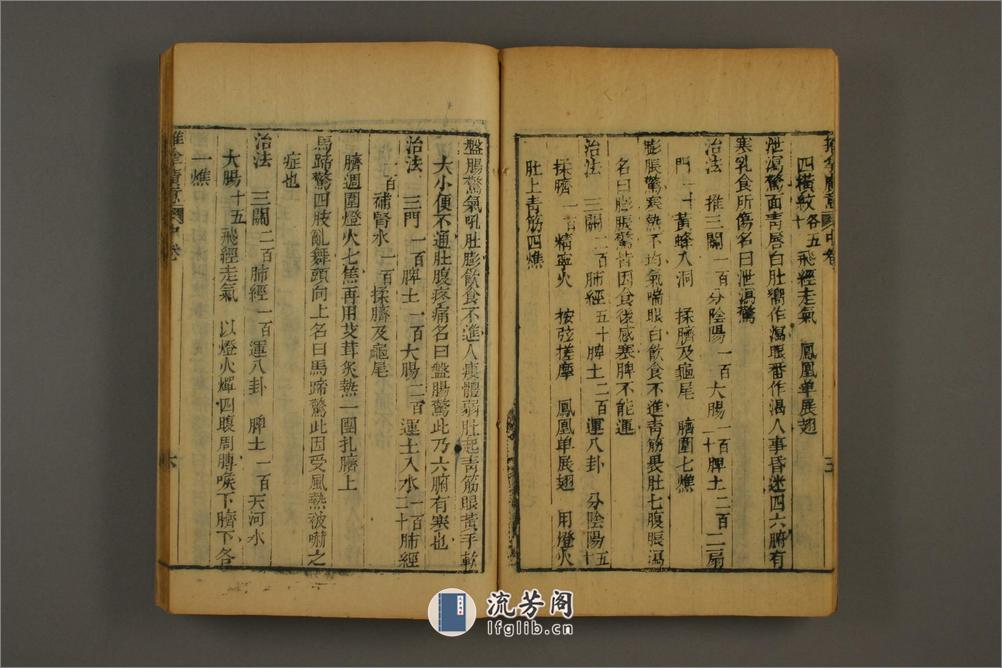 四橫紋各五十飛經走氣 鳳凰单展翅
泄瀉驚面青唇白肚響作瀉眼番作渴人事昏迷四六腑有
寒乳食所傷名曰泄瀉驚
治法 推三關一百分陰陽一百大腸一百二十脾土二百二扇
門二十黃蜂入洞 揉臍及龜尾 臍圍七燋
膨脹驚寒熱不均氣喘眼白飲食不進青筋畏肚七腹脹瀉
名曰膨脹驚皆因食後感寒脾不能運
治法 三關一百肺經五十脾土二百運八卦 分陰陽十五
揉臍一百精寧火 按弦搓摩 鳳凰单展翅 用燈火
肚上青筋四燋
五
盤腸驚氣吼肚膨飲食不進人瘦體弱肚起青筋眼黃手軟
大小便不通肚腹疼痛名曰盤腸驚此乃六腑有寒也
治法 三門一百脾土一百大腸二百運土入水一百肺經
一百補腎水一百揉臍及龜尾
臍週圍燈火七焦再用艾茸炙熱一團扎臍上
馬蹄驚四肢亂舞頭向上名曰馬蹄驚此因受風熱被嚇之
症也
治法 三關二百肺經一百運八卦 脾土一百天河水
大腸十五飛經走氣 以燈火燀四 周 喉下臍下各
一燋
六
流芳阁
lfglib.cn